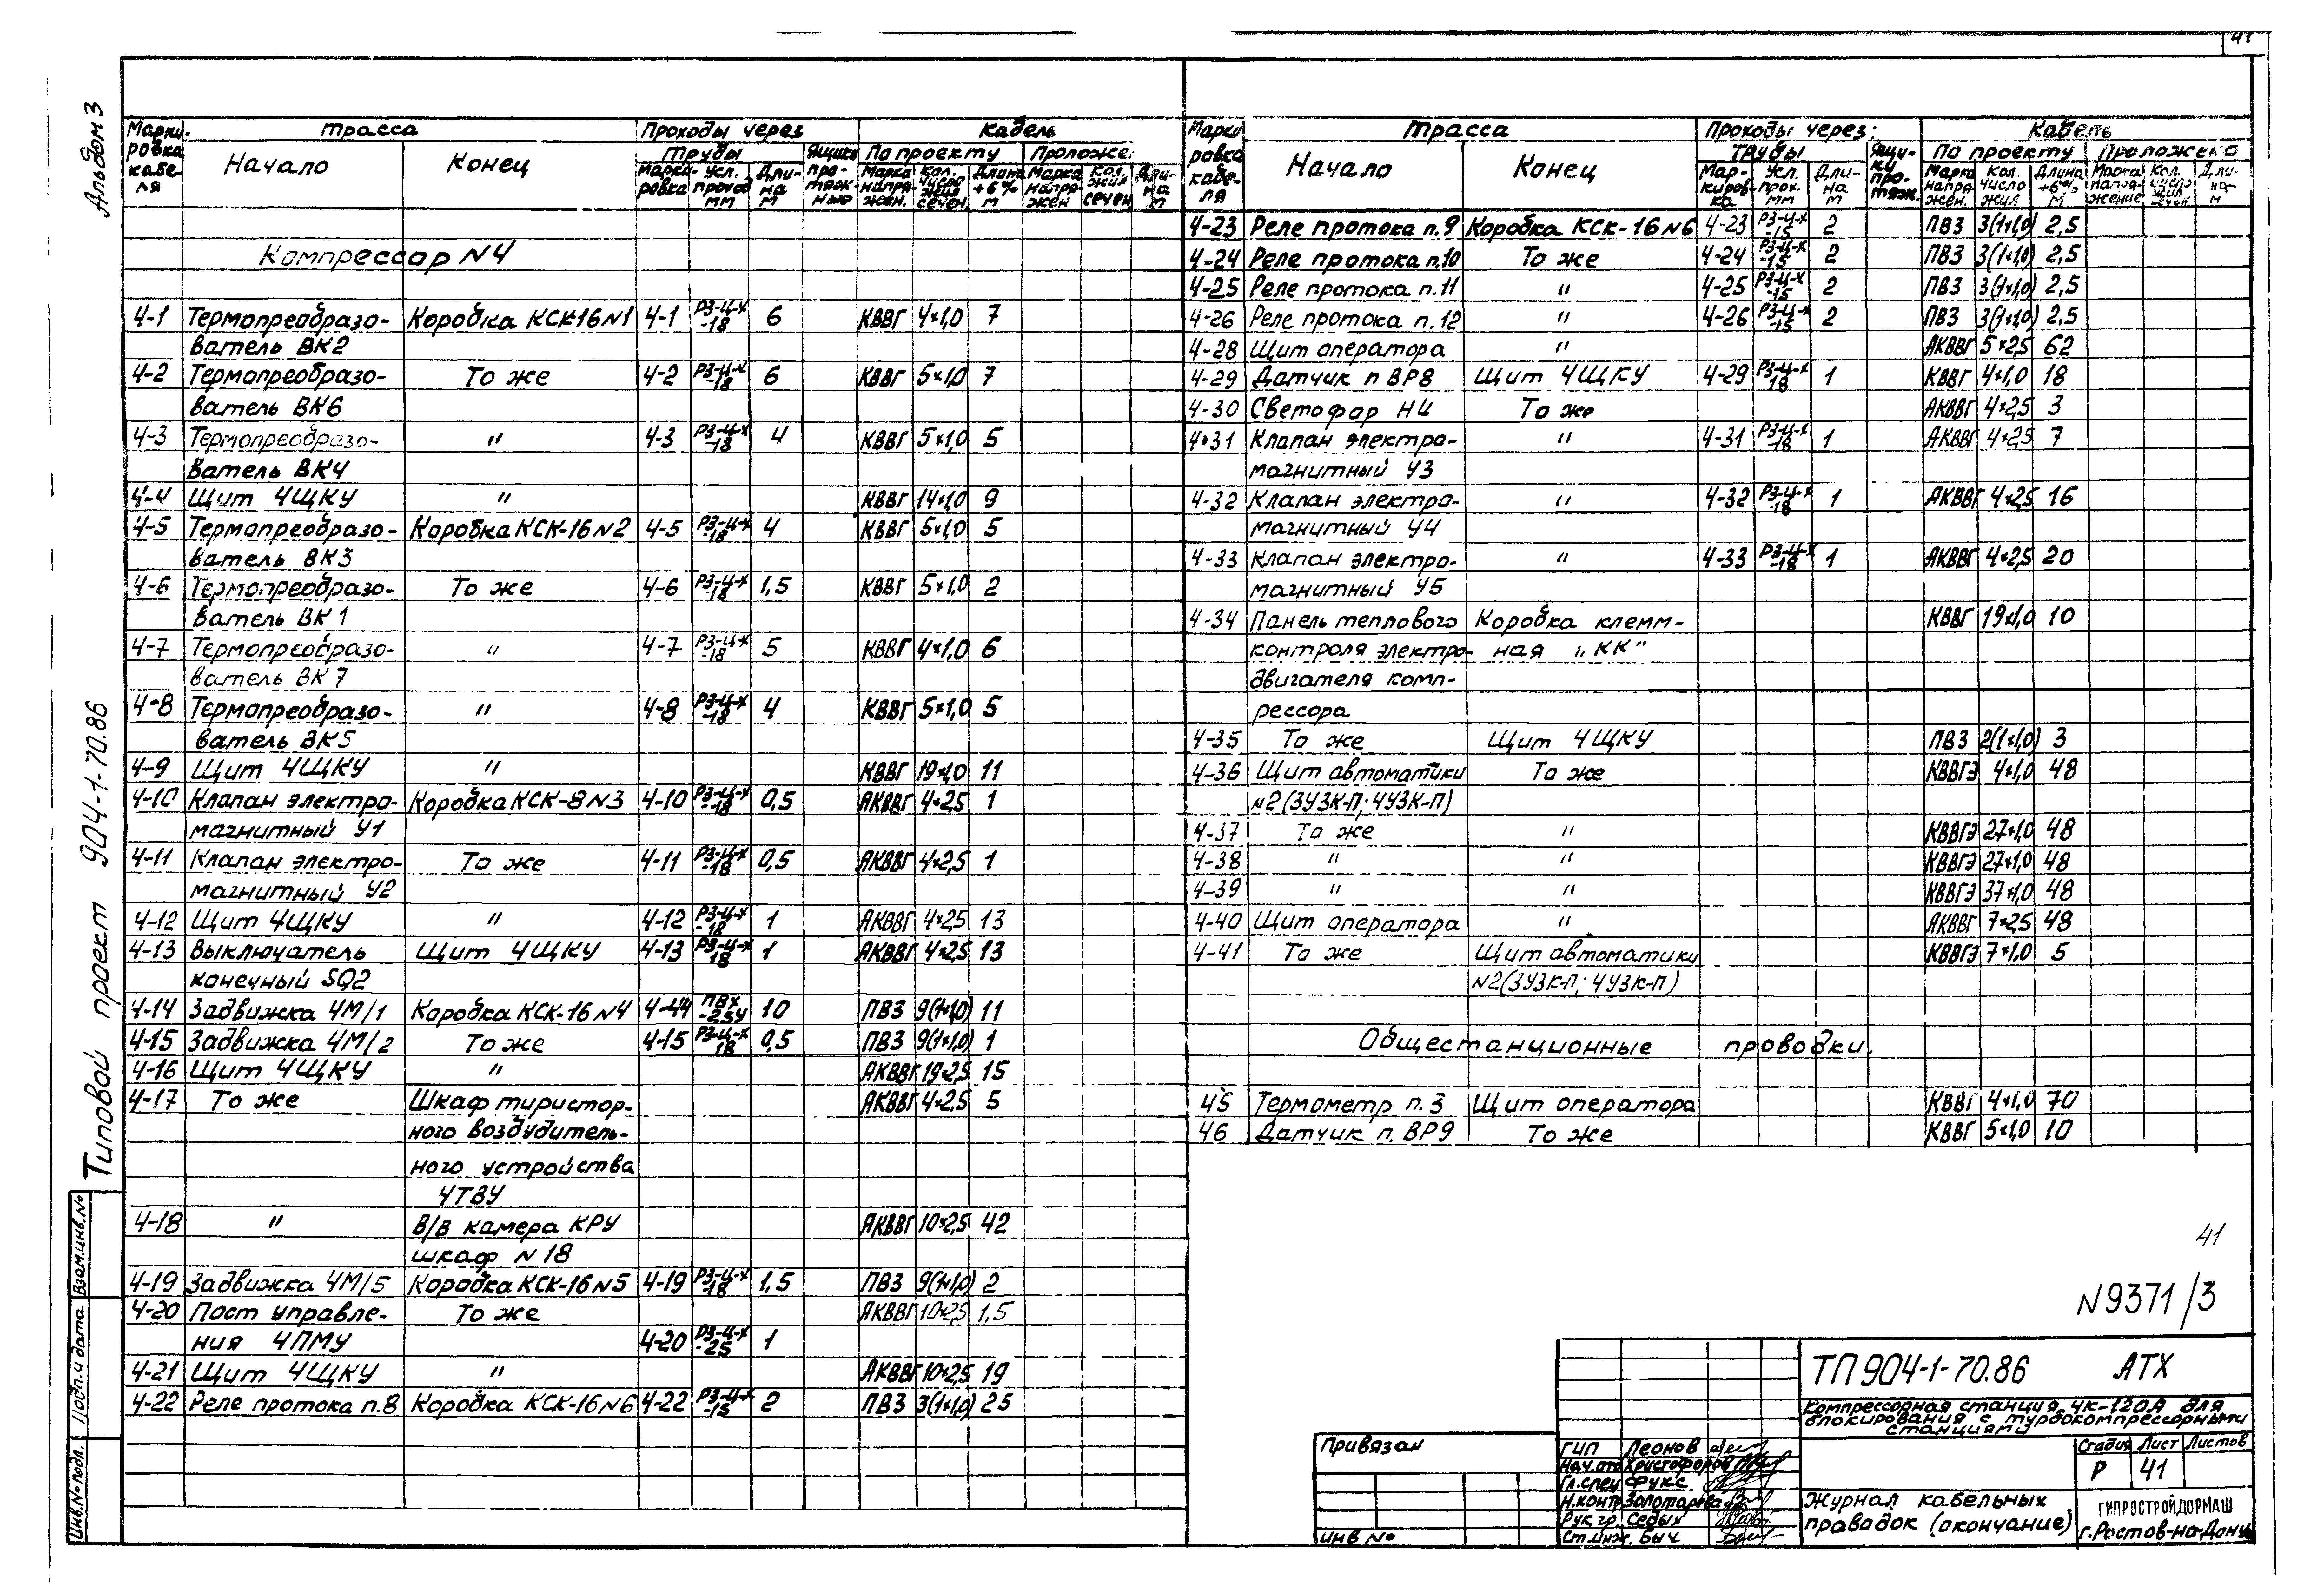 41
Альбом 3
Типовой проект 904-1-70.86
Взам.инв.№
Подп. и дата
Инв.№ подл.
Марки-ровка кабе-ля | Трасса | Проходы через | Кабель
Начало | Конец | Трубы | Ящики про-тяж-ные | По проекту | Проложе
Марки-ровка | Усл. проход мм | Дли-на м | Марка напря-жен. | Кол. число жил сечен. | Длина +6% м | Марка напря-жен | Кол. жил сечен | Дли-на м
Компрессор N4
4-1 Термопреобразо- Коробка КСК-16 N1 4-1 РЗ-Ц-Х-18 6 КВВГ 4×1,0 7
ватель ВК2
4-2 Термопреобразо- То же 4-2 РЗ-Ц-Х-18 6 КВВГ 5×1,0 7
ватель ВК6
4-3 Термопреобразо- " 4-3 РЗ-Ц-Х-18 4 КВВГ 5×1,0 5
ватель ВК4
4-4 Щит 4ЩКУ " КВВГ 14×1,0 9
4-5 Термопреобразо- Коробка КСК-16 N2 4-5 РЗ-Ц-Х-18 4 КВВГ 5×1,0 5
ватель ВК3
4-6 Термопреобразо- То же 4-6 РЗ-Ц-Х-18 1,5 КВВГ 5×1,0 2
ватель ВК1
4-7 Термопреобразо- " 4-7 РЗ-Ц-Х-18 5 КВВГ 4×1,0 6
ватель ВК7
4-8 Термопреобразо- " 4-8 РЗ-Ц-Х-18 4 КВВГ 5×1,0 5
ватель ВК5
4-9 Щит 4ЩКУ " КВВГ 19×1,0 11
4-10 Клапан электро- Коробка КСК-8 N3 4-10 РЗ-Ц-Х-18 0,5 АКВВГ 4×2,5 1
магнитный У1
4-11 Клапан электро- То же 4-11 РЗ-Ц-Х-18 0,5 АКВВГ 4×2,5 1
магнитный У2
4-12 Щит 4ЩКУ " 4-12 РЗ-Ц-Х-18 1 АКВВГ 4×2,5 13
4-13 Выключатель Щит 4ЩКУ 4-13 РЗ-Ц-Х-18 1 АКВВГ 4×2,5 13
конечный SQ2
4-14 Задвижка 4М/1 Коробка КСК-16 N4 4-44 ПВХ-25У 10 ПВЗ 9(1×1,0) 11
4-15 Задвижка 4М/2 То же 4-15 РЗ-Ц-Х-18 0,5 ПВЗ 9(1×1,0) 1
4-16 Щит 4ЩКУ " АКВВГ 19×2,5 15
4-17 То же Шкаф тиристор- АКВВГ 4×2,5 5
ного воздудитель-
ного устройства
4ТВУ
4-18 " В/В камера КРУ АКВВГ 10×2,5 42
шкаф N 18
4-19 Задвижка 4М/5 Коробка КСК-16 N5 4-19 РЗ-Ц-Х-18 1,5 ПВЗ 9(1×1,0) 2
4-20 Пост управле- То же АКВВГ 10×2,5 1,5
ния 4ПМУ 4-20 РЗ-Ц-Х-25 1
4-21 Щит 4ЩКУ " АКВВГ 10×2,5 19
4-22 Реле протока п.8 Коробка КСК-16 N6 4-22 РЗ-Ц-Х-15 2 ПВЗ 3(1×1,0) 25
Марки ровка кабе-ля | Трасса | Проходы через: | Кабель
Начало | Конец | Трубы | Ящи-ки про-тяж. | По проекту | Проложено
Мар-киров-ка | Усл. прох. мм | Дли-на м | Марка напря-жен. | Кол. число жил | Длина +6% м | Марка напря-жение | Кол. число жил сечен | Дли-на м
4-23 Реле протока п.9 Коробка КСК-16 N6 4-23 РЗ-Ц-Х-15 2 ПВЗ 3(1×1,0) 2,5
4-24 Реле протока п.10 То же 4-24 РЗ-Ц-Х-15 2 ПВЗ 3(1×1,0) 2,5
4-25 Реле протока п.11 " 4-25 РЗ-Ц-Х-15 2 ПВЗ 3(1×1,0) 2,5
4-26 Реле протока п.12 " 4-26 РЗ-Ц-Х-15 2 ПВЗ 3(1×1,0) 2,5
4-28 Щит оператора " АКВВГ 5×2,5 62
4-29 Датчик п ВР8 Щит 4ЩКУ 4-29 РЗ-Ц-Х-18 1 КВВГ 4×1,0 18
4-30 Светофор НЦ То же АКВВГ 4×2,5 3
4-31 Клапан электро- " 4-31 РЗ-Ц-Х-18 1 АКВВГ 4×2,5 7
магнитный У3
4-32 Клапан электро- " 4-32 РЗ-Ц-Х-18 1 АКВВГ 4×2,5 16
магнитный У4
4-33 Клапан электро- " 4-33 РЗ-Ц-Х-18 1 АКВВГ 4×2,5 20
магнитный У5
4-34 Панель теплового Коробка клемм- КВВГ 19×1,0 10
контроля электро- ная „КК"
двигателя комп-
рессора
4-35 То же Щит 4ЩКУ ПВЗ 2(1×1,0) 3
4-36 Щит автоматики То же КВВГЭ 4×1,0 48
N2 (3УЗК-П; 4УЗК-П)
4-37 То же " КВВГЭ 27×1,0 48
4-38 " " КВВГЭ 27×1,0 48
4-39 " " КВВГЭ 37×1,0 48
4-40 Щит оператора " АКВВГ 7×2,5 48
4-41 То же Щит автоматики КВВГЭ 7×1,0 5
N2 (3УЗК-П; 4УЗК-П)
Общестанционные проводки.
45 Термометр п.3 Щит оператора КВВГ 4×1,0 70
46 Датчик п. ВР9 То же КВВГ 5×1,0 10
41
N9371/3
ТП 904-1-70.86 АТХ
Компрессорная станция 4К-120А для
блокирования с турбокомпрессорными
станциями
Стадия Лист Листов
Р 41
Привязан
Инв №
ГИП Леонов
Нач.отд Христофоров
Гл.спец Фукс
Н.контр Золотарева
Рук.гр. Седых
Ст.инж. Быч
Журнал кабельных
проводок (окончание)
ГИПРОСТРОЙДОРМАШ
г.Ростов-на-Дону